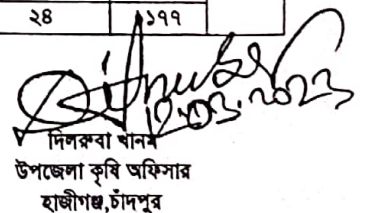 ২৪ ১৭৭
12.03.2023
দিলরুবা খানম
উপজেলা কৃষি অফিসার
হাজীগঞ্জ,চাঁদপুর